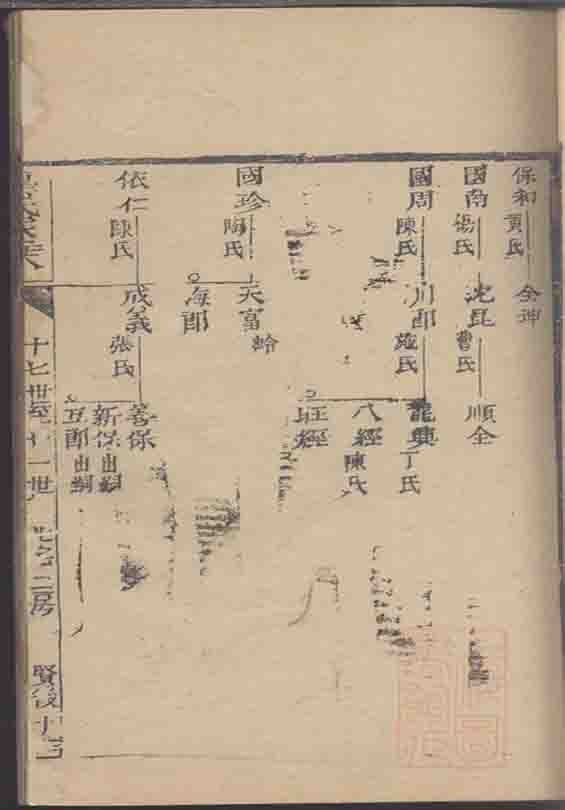 保和 賈氏 全珅
國南 楊氏 沈毘 曹氏 順全
國周 陳氏 川郎 施氏 龍興 丁氏
八經 陳氏
旺經
國珍 陶氏 天富 蛉
海郎
依仁 陳氏 成義 張氏 善保
新保 出嗣
互郎 出嗣
十七世至 一世 三房 賢 十三